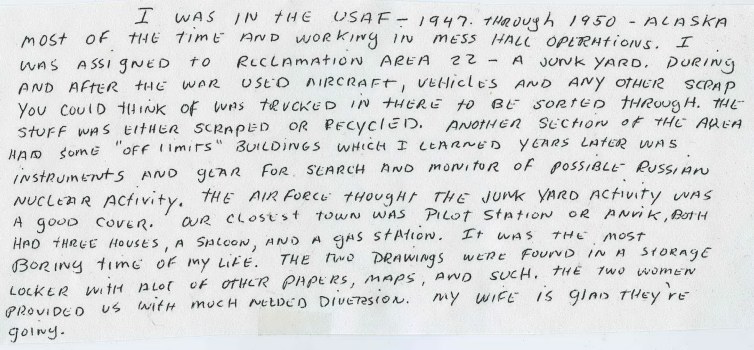 I WAS IN THE USAF - 1947. THROUGH 1950 - ALASKA
MOST OF THE TIME AND WORKING IN MESS HALL OPERATIONS. I
WAS ASSIGNED TO RECLAMATION AREA 22 - A JUNK YARD. DURING
AND AFTER THE WAR USED AIRCRAFT, VEHICLES AND ANY OTHER SCRAP
YOU COULD THINK OF WAS TRUCKED IN THERE TO BE SORTED THROUGH. THE
STUFF WAS EITHER SCRAPED OR RECYCLED. ANOTHER SECTION OF THE AREA
HAD SOME "OFF LIMITS" BUILDINGS WHICH I LEARNED YEARS LATER WAS
INSTRUMENTS AND GEAR FOR SEARCH AND MONITOR OF POSSIBLE RUSSIAN
NUCLEAR ACTIVITY. THE AIR FORCE THOUGHT THE JUNK YARD ACTIVITY WAS
A GOOD COVER. OUR CLOSEST TOWN WAS PILOT STATION OR ANVIK, BOTH
HAD THREE HOUSES, A SALOON, AND A GAS STATION. IT WAS THE MOST
BORING TIME OF MY LIFE. THE TWO DRAWINGS WERE FOUND IN A STORAGE
LOCKER WITH ALOT OF OTHER PAPERS, MAPS, AND SUCH. THE TWO WOMEN
PROVIDED US WITH MUCH NEEDED DIVERSION. MY WIFE IS GLAD THEY'RE
GOING.